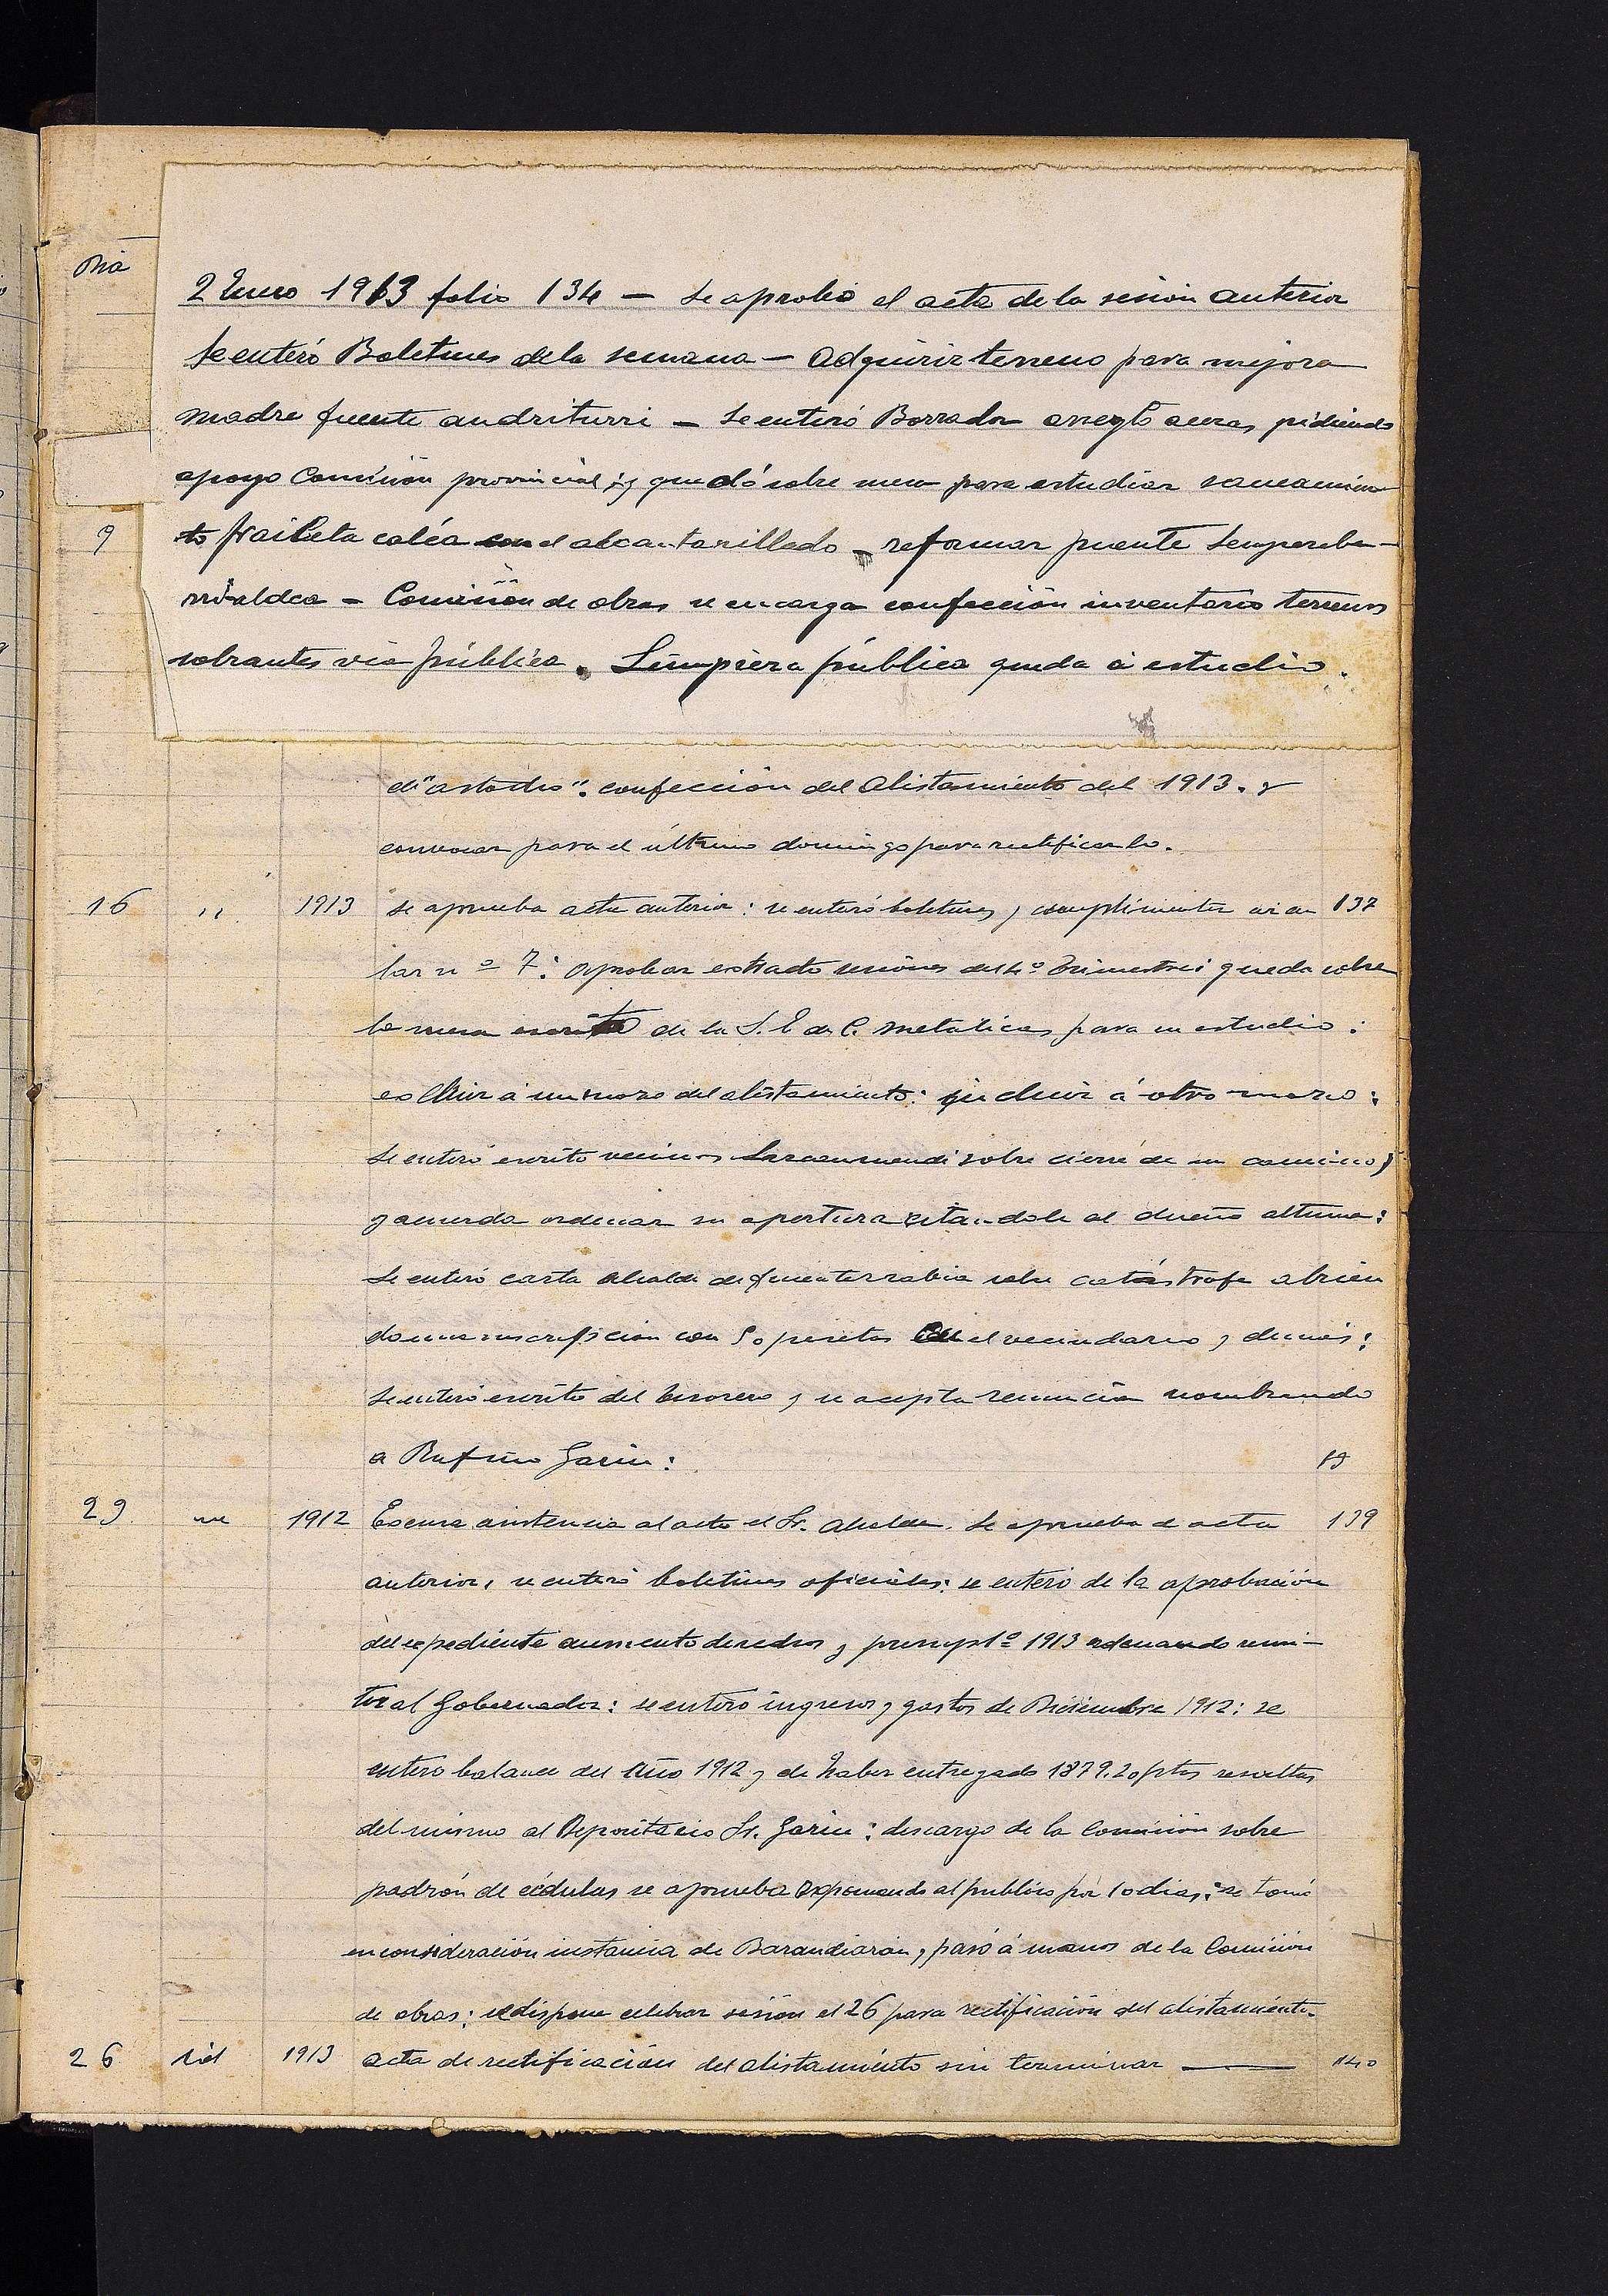 Dia
2 Enero 1913 folio 134 — Se aprobó el acta de la sesión anterior
Se enteró Boletines de la semana — Adquirir terreno para mejora
madre fuente andriturri — Se enteró Borrador arreglo aceras pidiendo
apoyo Comisión provincial y quedó sobre mesa para estudiar saneamien
9 to caléa con el alcantarillado — reformar puente
Comisión de obras se encarga confección inventario terrenos
sobrantes via pública. Limpieza pública queda á estudio.
confección del Alistamiento del 1913. y
convocar para el último domingo para rectificarlo.
16 " 1913 se aprueba acta anterior: se enteró boletines y cumplimentar circu 137
lar nº 7: aprobar extracto sesiones del 4º trimestre: queda sobre
la mesa escrito de la S. E. de C. metalicas para su estudio:
excluir á un mozo del alistamiento: incluir á otro mozo:
Se enteró escrito vecinos sobre cierre de un camino y
y acuerda ordenar su apertura citandole al dueño
Se enteró carta Alcalde de fuenterrabia sobre catástrofe abrien
do una suscripción con 50 pesetas en el vecindario y demás:
Se enteró escrito del tesorero y se acepta renuncia nombrando
a Rufino Garin:
23 1912 Escusa asistencia al acto el Sr. Alcalde. Se aprueba el acta 139
anterior, se enteró boletines oficiales: se enteró de la aprobación
del expediente aumento y presupto 1913 ordenando remi-
tir al Gobernador: se enteró ingresos y gastos de Diciembre 1912: se
enteró balance del año 1912 y de haber entregado 1879,20 ptas resultas
del mismo al Depositario Sr. Garin: descargo de la Comisión sobre
padrón de cédulas se aprueba exponiendo al público por 10 dias: se tomó
en consideración instancia de Barandiarán, pasó á manos de la Comisión
de obras: se dispone celebrar sesión el 26 para rectificación del alistamiento.
26 id 1913 acta de rectificación del alistamiento sin terminar — 140